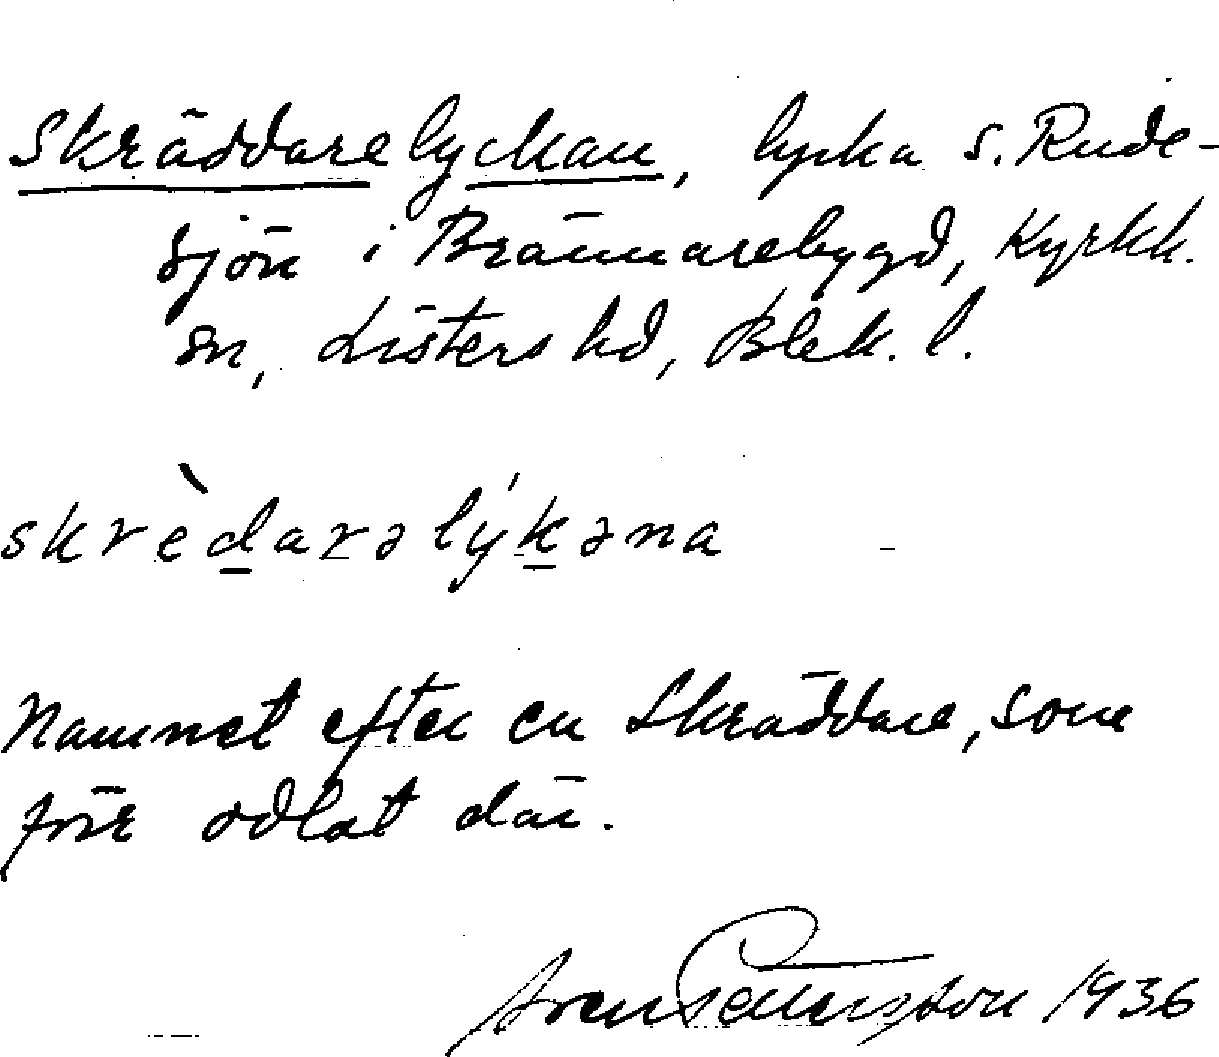 Skräddarelyckan, lycka s. Rude-
sjön i Brännarebygd, Kyrkh.
sn, Listers hd, Blek. l.
skrèdarəlýkəna
Namnet efter en skräddare, som
förr odlat där.
Sven Pettersson 1936